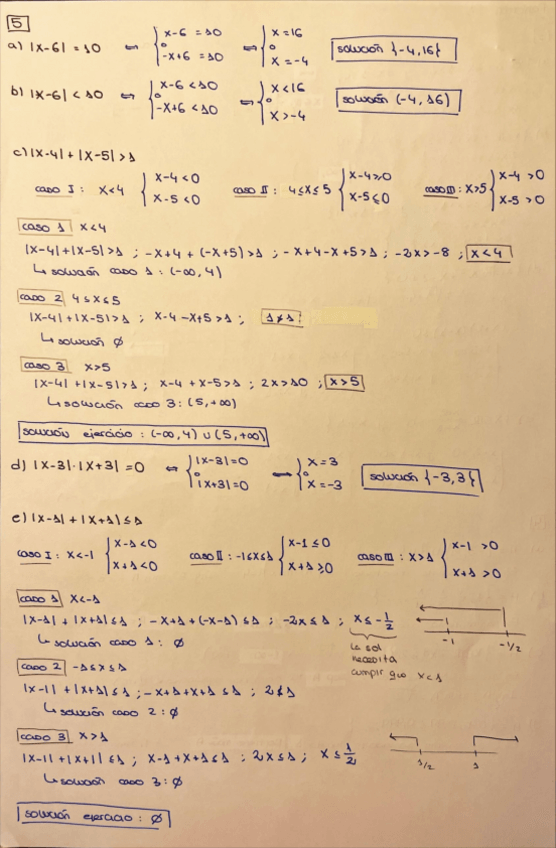 5
a) |x-6| = 10 ⇔ { x-6 = 10 o -x+6 = 10 ⇔ { x = 16 o x = -4 solución {-4,16}
b) |x-6| < 10 ⇔ { x-6 < 10 o -x+6 < 10 ⇔ { x < 16 o x > -4 solución (-4, 16)
c) |x-4| + |x-5| > 1
caso I: x<4 { x-4 < 0 x-5 < 0 caso II: 4≤x≤5 { x-4 ≥ 0 x-5 ≤ 0 caso III: x>5 { x-4 > 0 x-5 > 0
caso 1 x<4
|x-4| + |x-5| > 1 ; -x+4 + (-x+5) > 1 ; -x+4-x+5 > 1 ; -2x > -8 ; x < 4
↳ solución caso 1 : (-∞, 4)
caso 2 4≤x≤5
|x-4| + |x-5| > 1 ; x-4 -x+5 > 1 ; 1 ≯ 1
↳ solución ∅
caso 3 x>5
|x-4| + |x-5| > 1 ; x-4 + x-5 > 1 ; 2x > 10 ; x > 5
↳ solución caso 3: (5, +∞)
solución ejercicio : (-∞, 4) ∪ (5, +∞)
d) |x-3|·|x+3| = 0 ⇔ { |x-3| = 0 o |x+3| = 0 ⇔ { x = 3 o x = -3 solución {-3,3}
e) |x-1| + |x+1| ≤ 1
caso I: x<-1 { x-1 < 0 x+1 < 0 caso II: -1≤x≤1 { x-1 ≤ 0 x+1 ≥ 0 caso III: x>1 { x-1 > 0 x+1 > 0
caso 1 x<-1
|x-1| + |x+1| ≤ 1 ; -x+1 + (-x-1) ≤ 1 ; -2x ≤ 1 ; x ≤ -1/2
-1 -1/2
↳ solución caso 1 : ∅
la sol
necesita
cumplir que x < 1
caso 2 -1≤x≤1
|x-1| + |x+1| ≤ 1 ; -x+1+x+1 ≤ 1 ; 2 ≰ 1
↳ solución caso 2 : ∅
caso 3 x>1
|x-1| + |x+1| ≤ 1 ; x-1 + x+1 ≤ 1 ; 2x ≤ 1 ; x ≤ 1/2
1/2 1
↳ solución caso 3: ∅
solución ejercicio : ∅